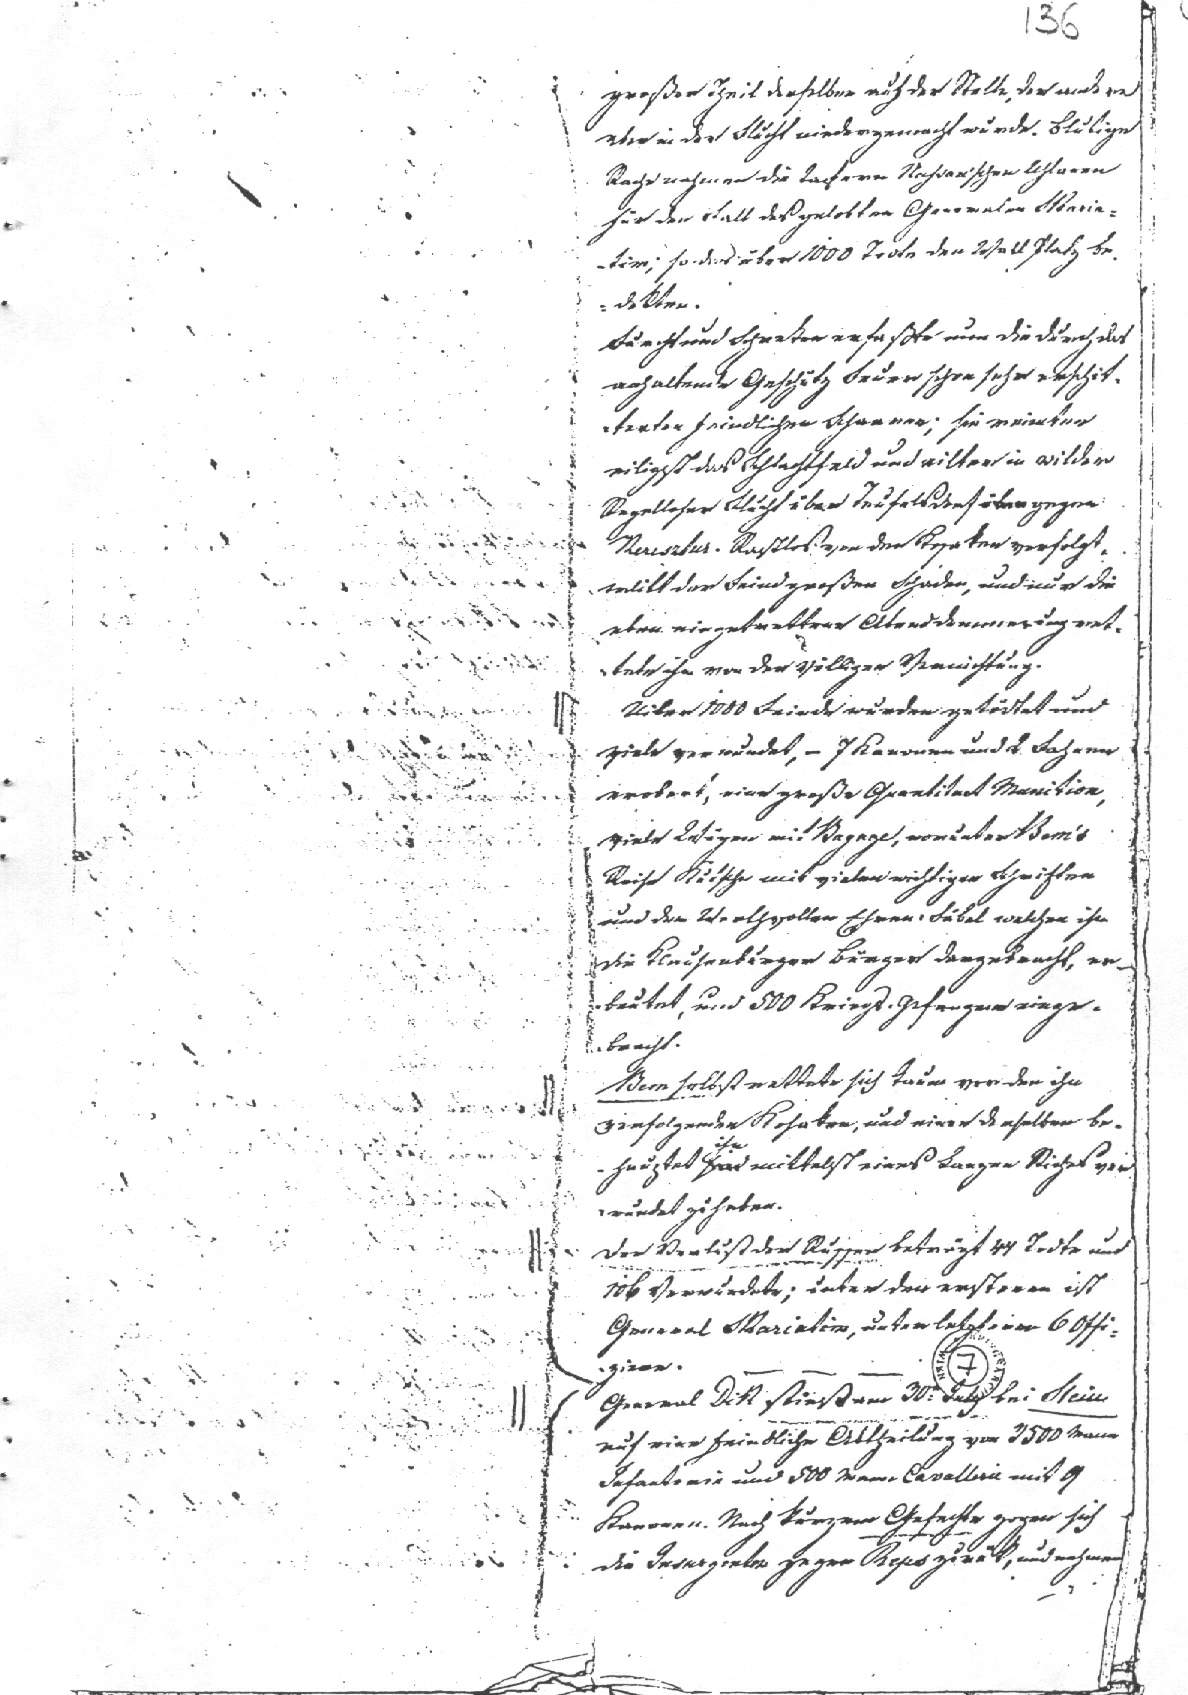 136
großer Theil derselben auf der Stelle, der andere
aber in der Flucht niedergemacht wurde. Blutige
Rache nahmen die tapfern Uhlanen
für den Fall des geliebten Generalen Skaria-
-tin; so daß über 1000 Todte den Wall Platz be-
-dekten.
Furcht und Schreken erfaßte nun die durch das
anhaltende Geschütz Feuer schon sehr erschüt-
-terten feindlichen Schaaren; sie räumten
eiligst das Schlachtfeld und eilten in wilder
Regelloser Flucht über Teufelsdorf gegen
Keresztur. Rastlos von den Kosaken verfolgt,
erlitt der Feind großen Schaden, und nur die
eben eingetrettene Abenddämmerung ret-
-tete ihn von der völligen Vernichtung.
Über 1000 Feinde wurden getödtet und
viele verwundet, – 7 Kanonen und 2 Fahnen
erobert, eine große Quantitaet Munition,
viele Wägen mit Bagage, worunter Bem's
Reise Kutsche mit vielen wichtigen Schriften
und den Werthvollen Ehren-Säbel welchen ihm
die Klausenburger Bürger dargebracht, er-
-beutet, und 500 Kriegs-Gefangene einge-
-bracht.
Bem selbst rettete sich kaum vor den ihn
verfolgenden Kosaken, und einer derselben be-
-hauptet ihn mittelst eines Langen Stiches ver-
-wundet zu haben.
Der Verlust der Russen beträgt 44 Todte und
106 Verwundete; unter den ersteren ist
General Skariatin, unter letzteren 6 Offi-
-ziere.
7
General Dik stieß am 30t July bei Stein
auf eine feindliche Abtheilung von 2500 Mann
Infanterie und 500 Mann Cavallerie mit 9
Kanonen. Nach kurzem Gefechte zogen sich
die Insurgenten gegen Reps zurük, und nahmen